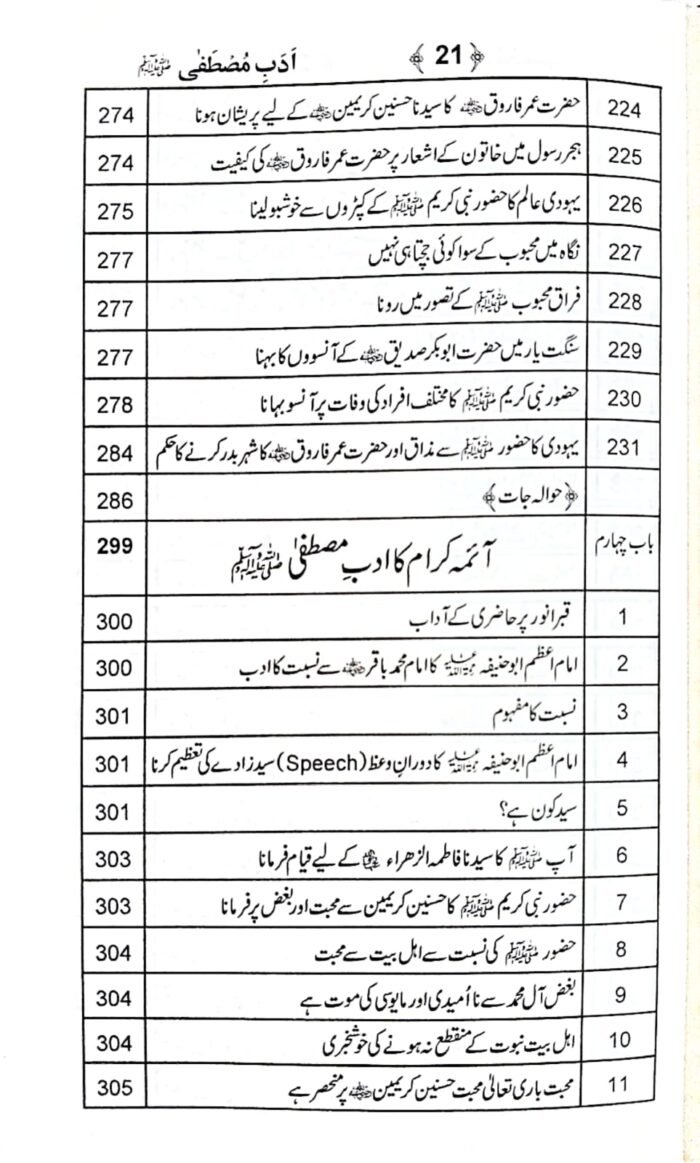 اَدَبِ مُصْطَفٰی ﷺ ﴿21﴾
224 حضرت عمر فاروق رضی اللہ عنہ کا سیدنا حسنین کریمین رضی اللہ عنہم کے لیے پریشان ہونا 274
225 ہجر رسول میں خاتون کے اشعار پر حضرت عمر فاروق رضی اللہ عنہ کی کیفیت 274
226 یہودی عالم کا حضور نبی کریم ﷺ کے کپڑوں سے خوشبو لینا 275
227 نگاہ میں محبوب کے سوا کوئی جچتا ہی نہیں 277
228 فراق محبوب ﷺ کے تصور میں رونا 277
229 سنگت یار میں حضرت ابوبکر صدیق رضی اللہ عنہ کے آنسووں کا بہنا 277
230 حضور نبی کریم ﷺ کا مختلف افراد کی وفات پر آنسو بہانا 278
231 یہودی کا حضور ﷺ سے مذاق اور حضرت عمر فاروق رضی اللہ عنہ کا شہر بدر کرنے کا حکم 284
﴿حوالہ جات﴾ 286
باب چہارم آئمہ کرام کا ادبِ مصطفیٰ ﷺ 299
1 قبر انور پر حاضری کے آداب 300
2 امام اعظم ابو حنیفہ رحمۃ اللہ علیہ کا امام محمد باقر رضی اللہ عنہ سے نسبت کا ادب 300
3 نسبت کا مفہوم 301
4 امام اعظم ابو حنیفہ رحمۃ اللہ علیہ کا دورانِ وعظ (Speech) سید زادے کی تعظیم کرنا 301
5 سید کون ہے؟ 301
6 آپ ﷺ کا سیدنا فاطمہ الزھراء رضی اللہ عنہا کے لیے قیام فرمانا 303
7 حضور نبی کریم ﷺ کا حسنین کریمین سے محبت اور بغض پر فرمانا 303
8 حضور ﷺ کی نسبت سے اہل بیت سے محبت 304
9 بغض آل محمد سے نا اُمیدی اور مایوسی کی موت ہے 304
10 اہل بیت نبوت کے منقطع نہ ہونے کی خوشخبری 304
11 محبت باری تعالیٰ محبت حسنین کریمین رضی اللہ عنہم پر منحصر ہے 305